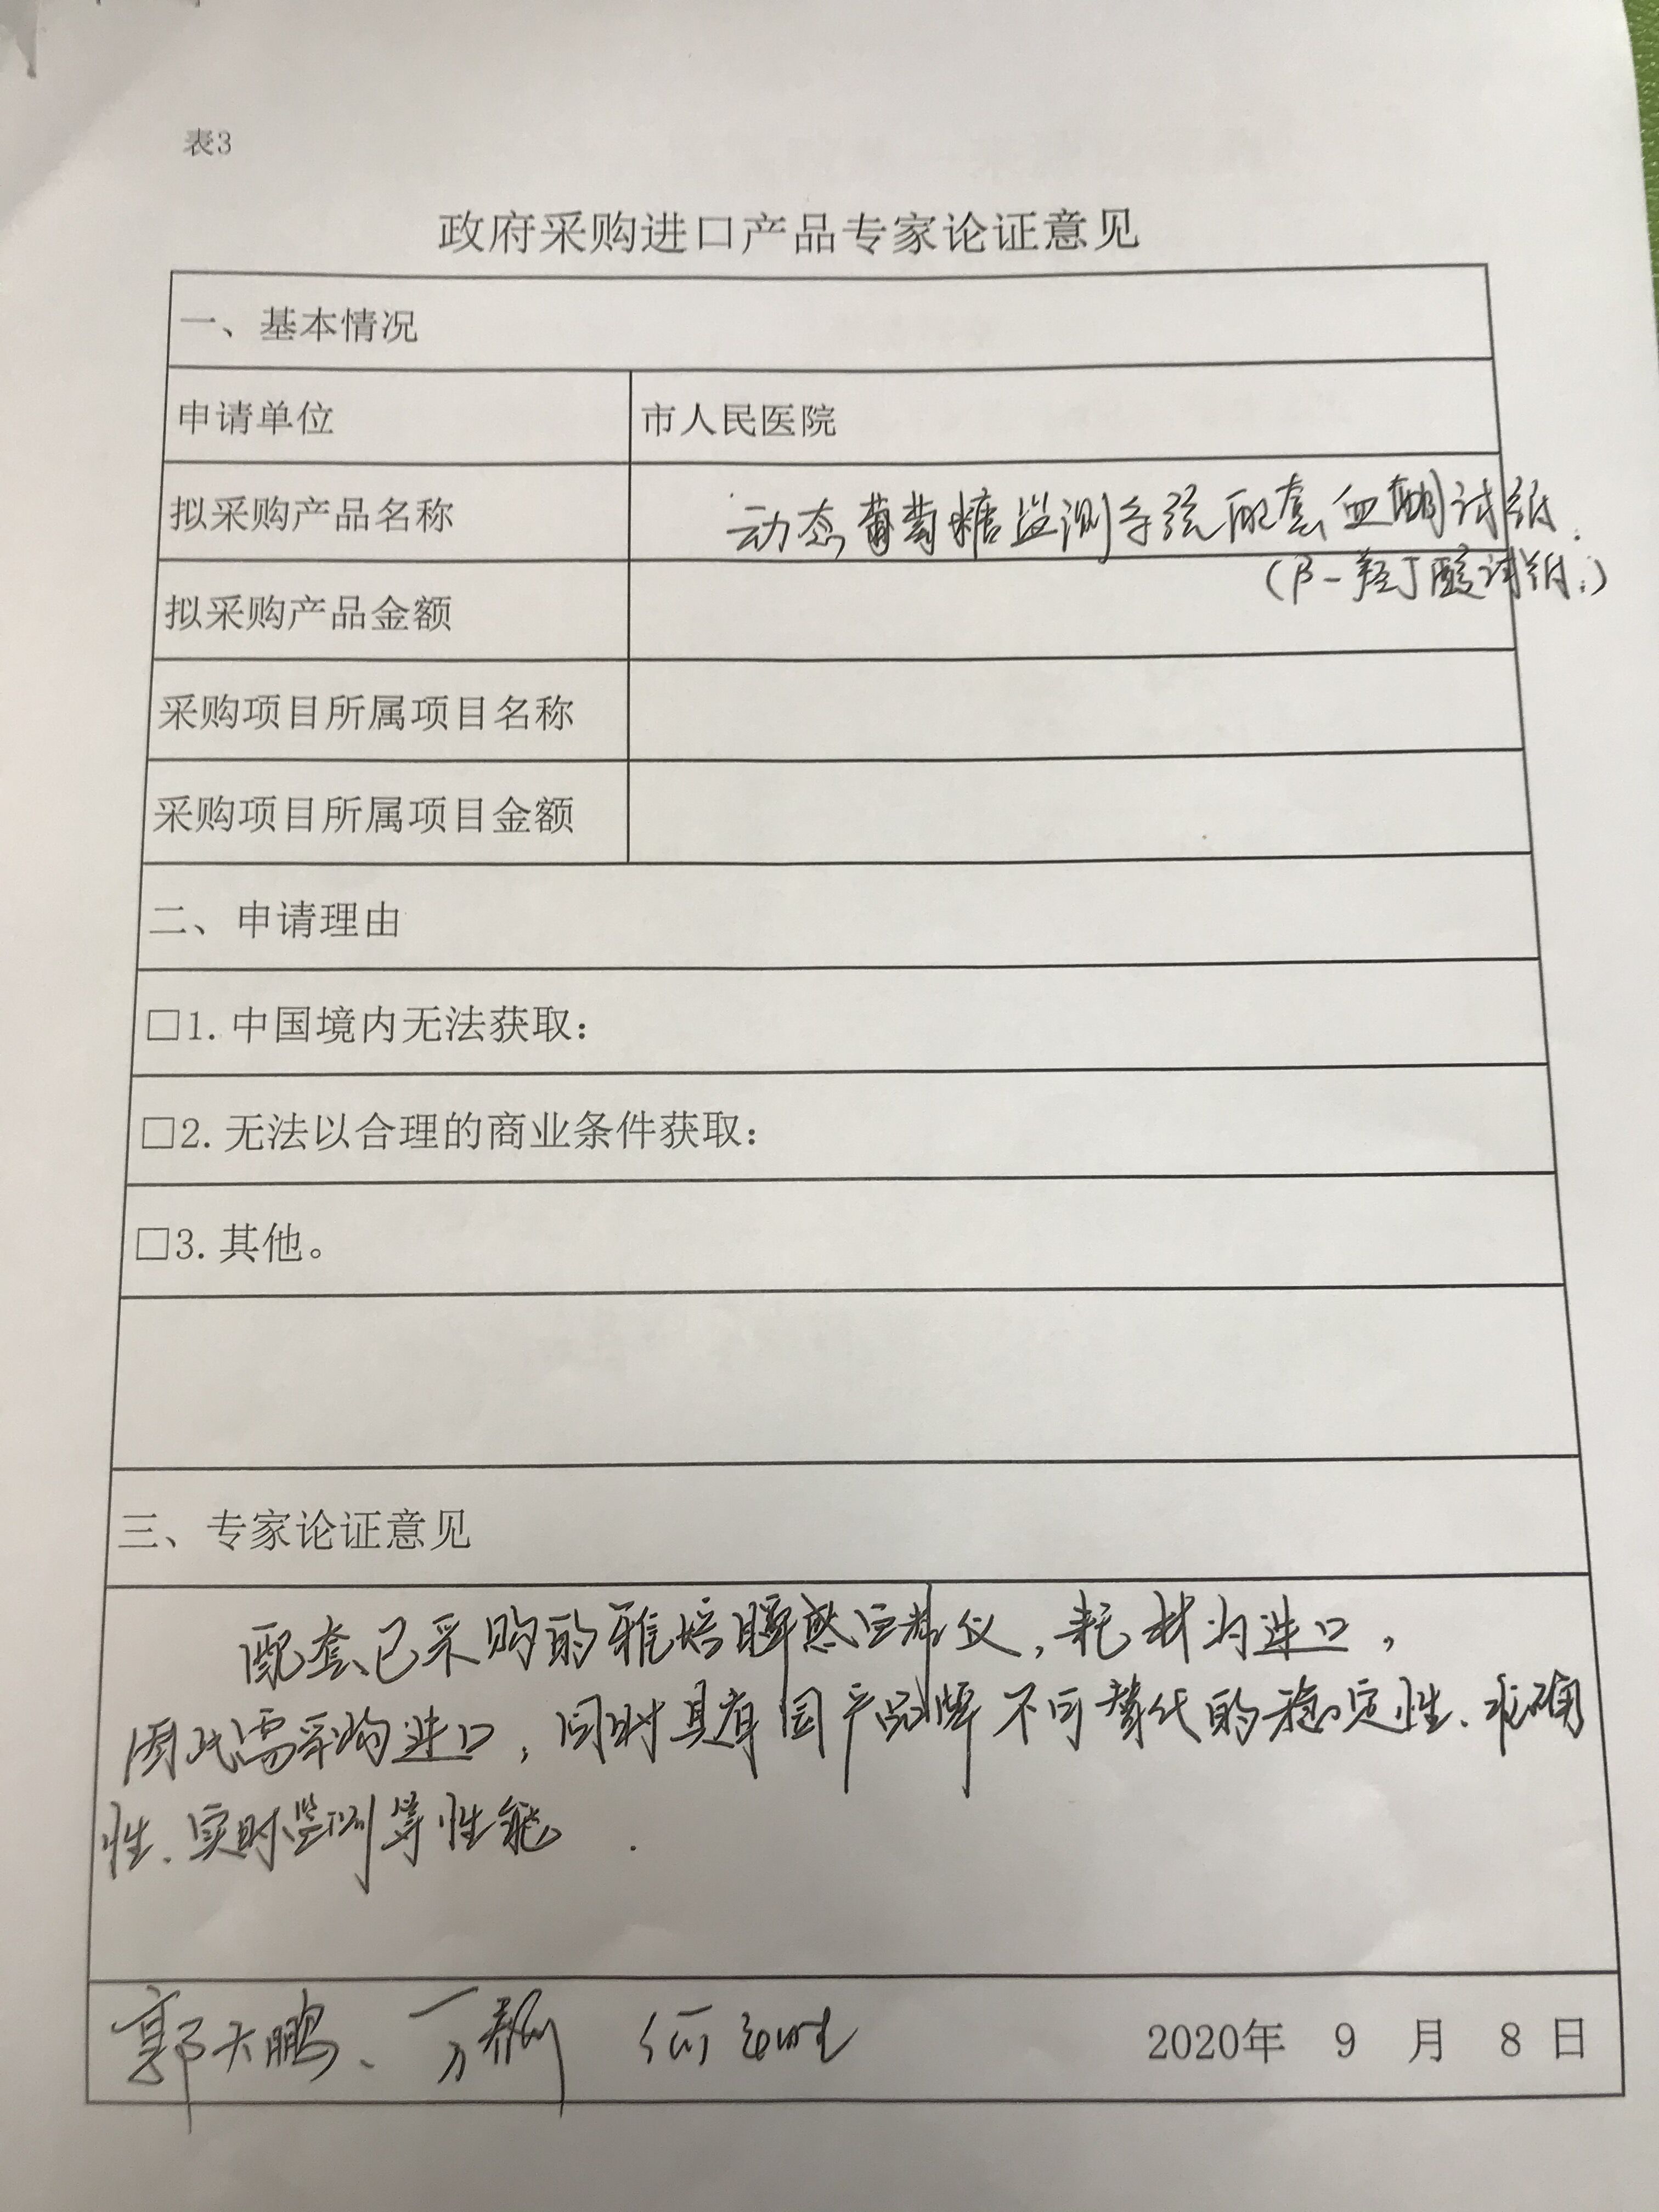 表3
政府采购进口产品专家论证意见
一、基本情况
申请单位 市人民医院
拟采购产品名称 动态葡萄糖监测系统配套血酮试纸.
(β-羟丁酸试纸.)
拟采购产品金额
采购项目所属项目名称
采购项目所属项目金额
二、申请理由
□1.中国境内无法获取：
□2.无法以合理的商业条件获取：
□3.其他。
三、专家论证意见
配套已采购的雅培瞬感宝 仪，耗材为进口，
因此需采购进口，同时具有国产品牌不可替代的稳定性、准确
性、实时监测等性能.
郭大鹏、 2020年 9 月 8 日